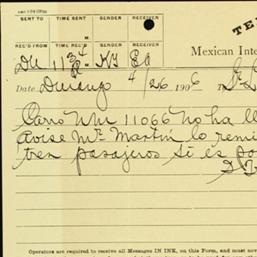 SENT TO TIME SENT SENDER RECEIVER
REC'D FROM TIME REC'D SENDER RECEIVER
Mexican Inte
Du 113 Ed
Date Durango 4/26 1906
Carro NM 11066 No ha ll
Avise Mr Martin lo remi
tren pasajeros si es po
Operators are required to receive all Messages IN INK, on this Form, and must nev